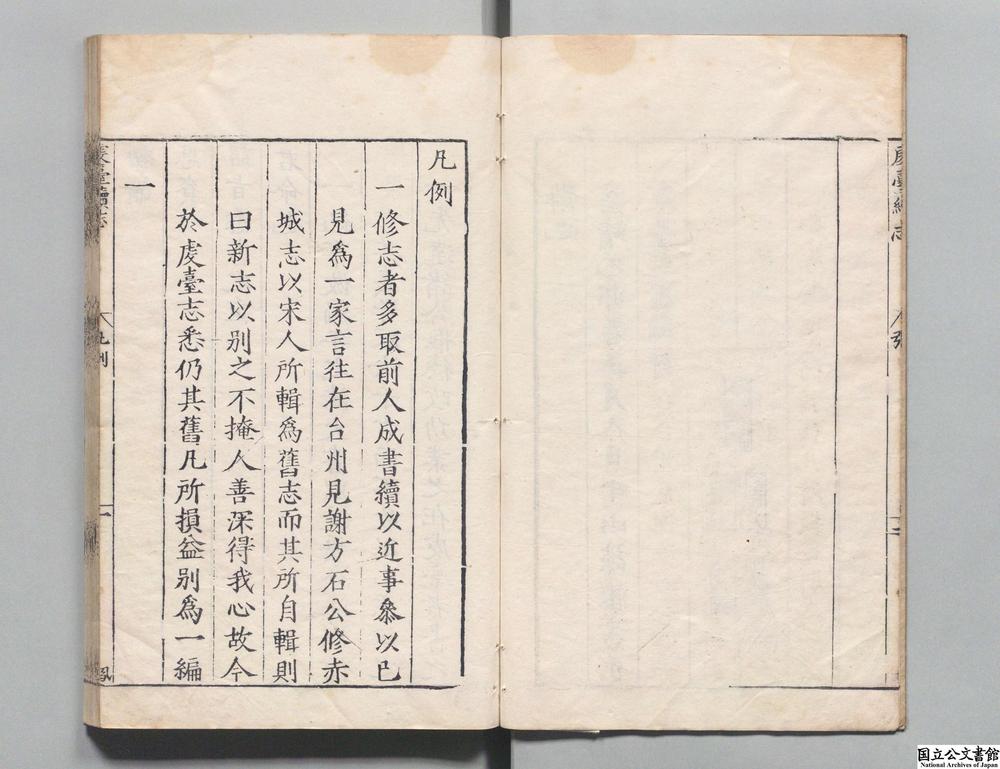 凡例
一修志者多取前人成書續以近事叅以已
見爲一家言往在台州見謝方石公修赤
城志以宋人所輯爲舊志而其所自輯則
曰新志以別之不掩人善深得我心故今
於虔臺志悉仍其舊凡所損益别爲一編
一
虔臺續志
凡例
一
虔臺續志
国立公文書館
National Archives of Japan